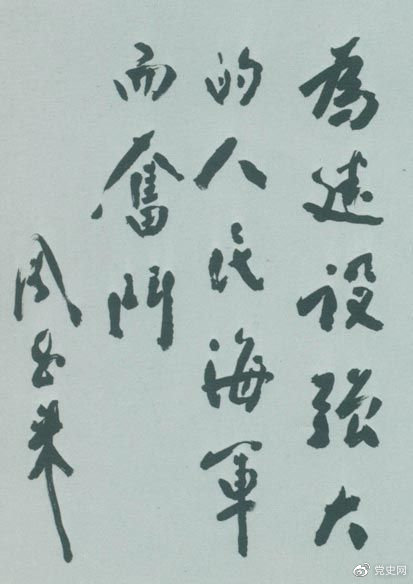 為建設强大
的人民海軍
而奮鬥
周恩来
党史网